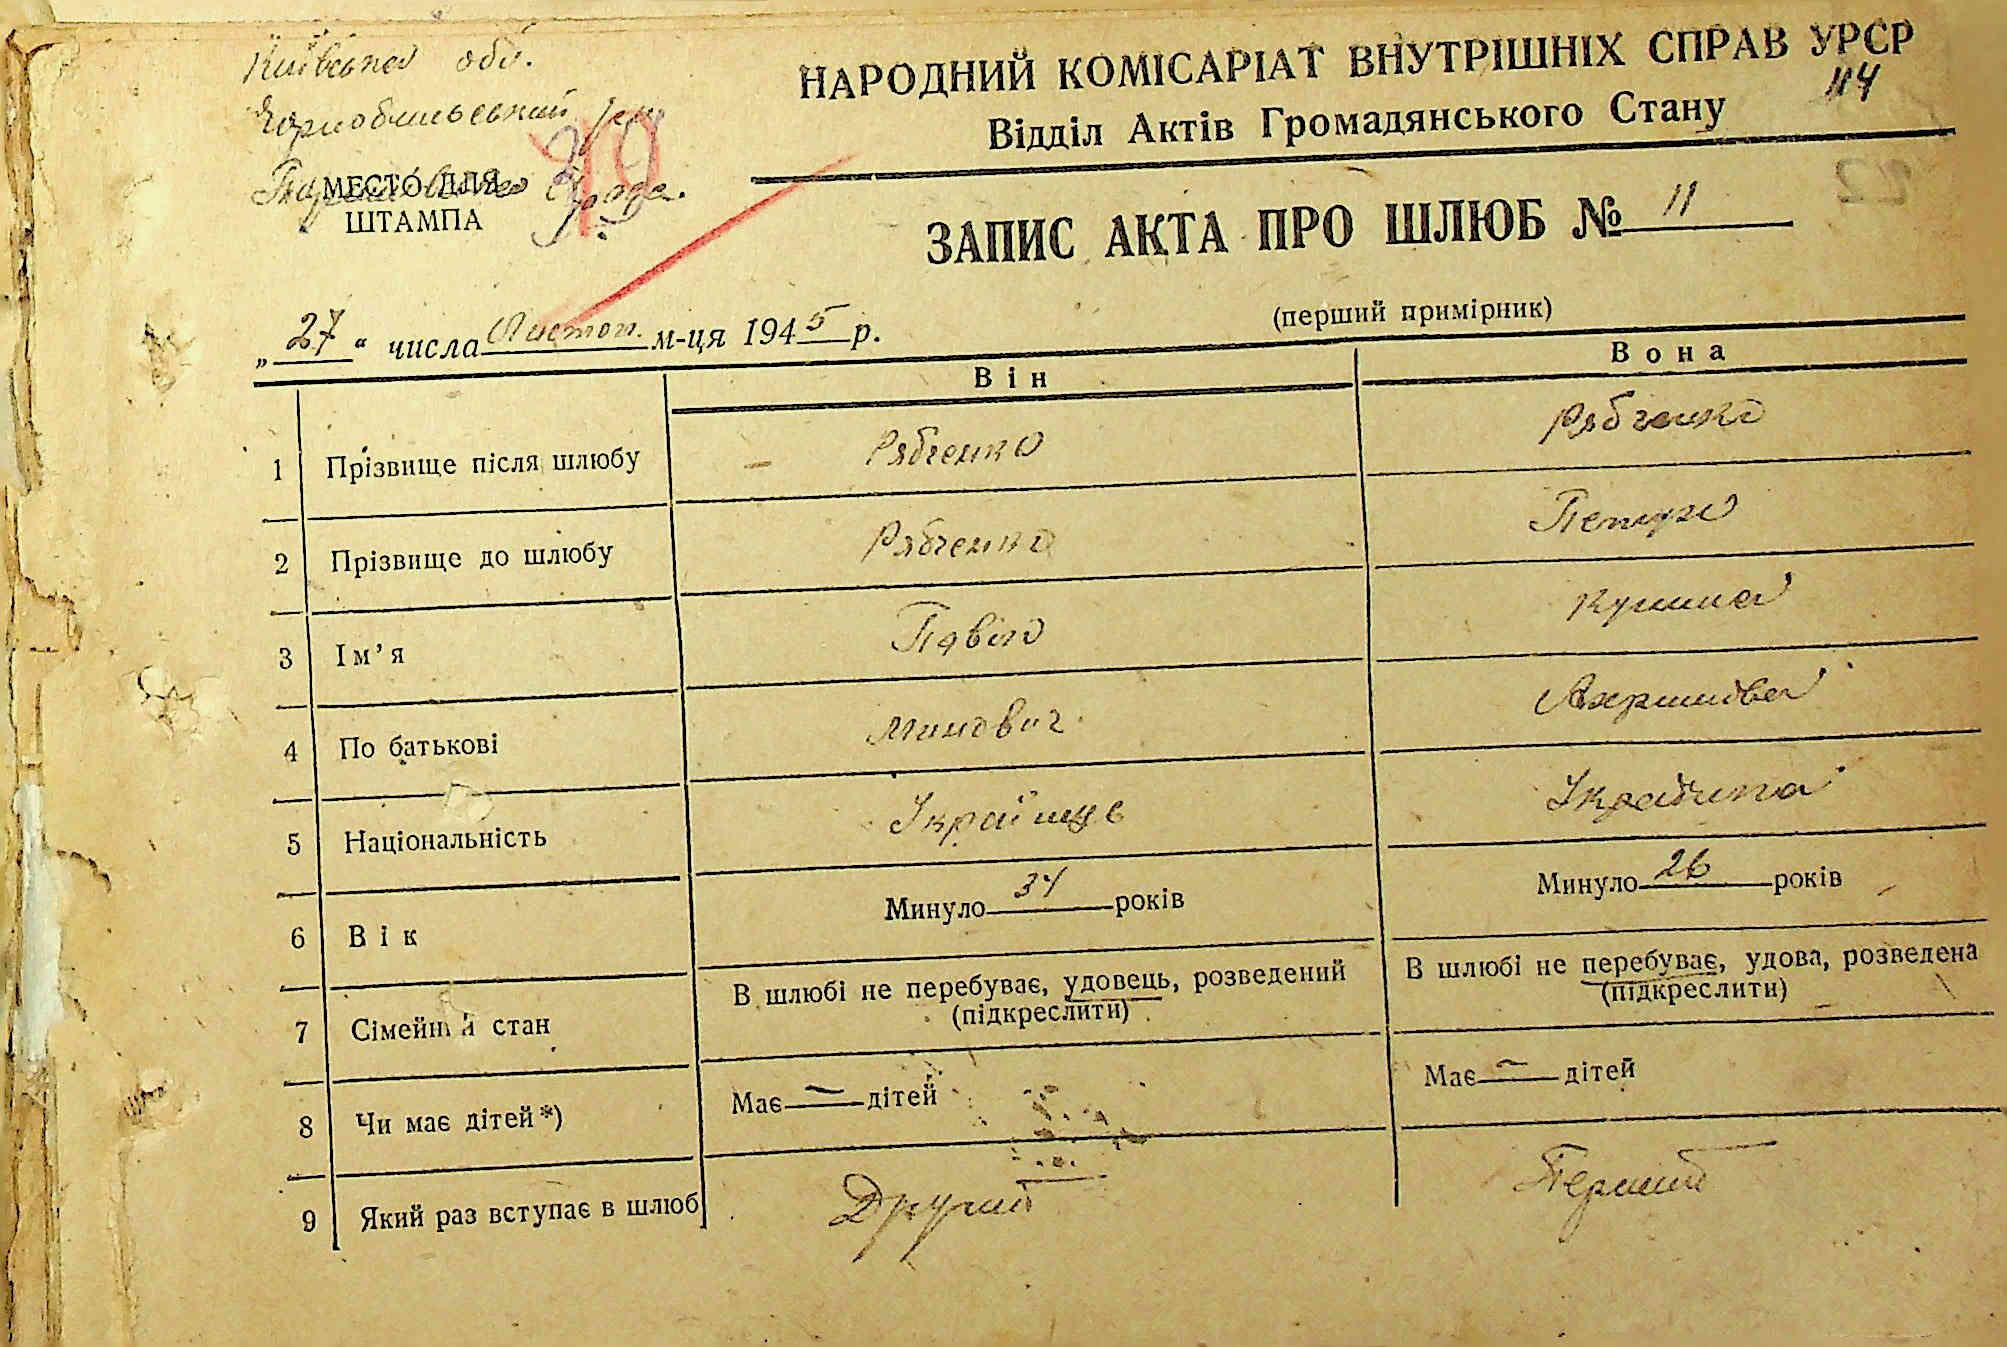 Київська обл.
Чорнобильський р-н
МЕСТО ДЛЯ
ШТАМПА
НАРОДНИЙ КОМІСАРІАТ ВНУТРІШНІХ СПРАВ УРСР
114
Відділ Актів Громадянського Стану
ЗАПИС АКТА ПРО ШЛЮБ № 11
(перший примірник)
„27“ числа Листоп. м-ця 1945 р.
Він Вона
1 Прізвище після шлюбу Рябченко Рябченко
2 Прізвище до шлюбу Рябченко
3 Ім'я Павло
4 По батькові Минович
5 Національність Українць Українка
6 Вік Минуло 34 років Минуло 26 років
7 Сімейний стан В шлюбі не перебуває, удовець, розведений (підкреслити) В шлюбі не перебуває, удова, розведена (підкреслити)
8 Чи має дітей*) Має — дітей Має — дітей
9 Який раз вступає в шлюб Другий Перший